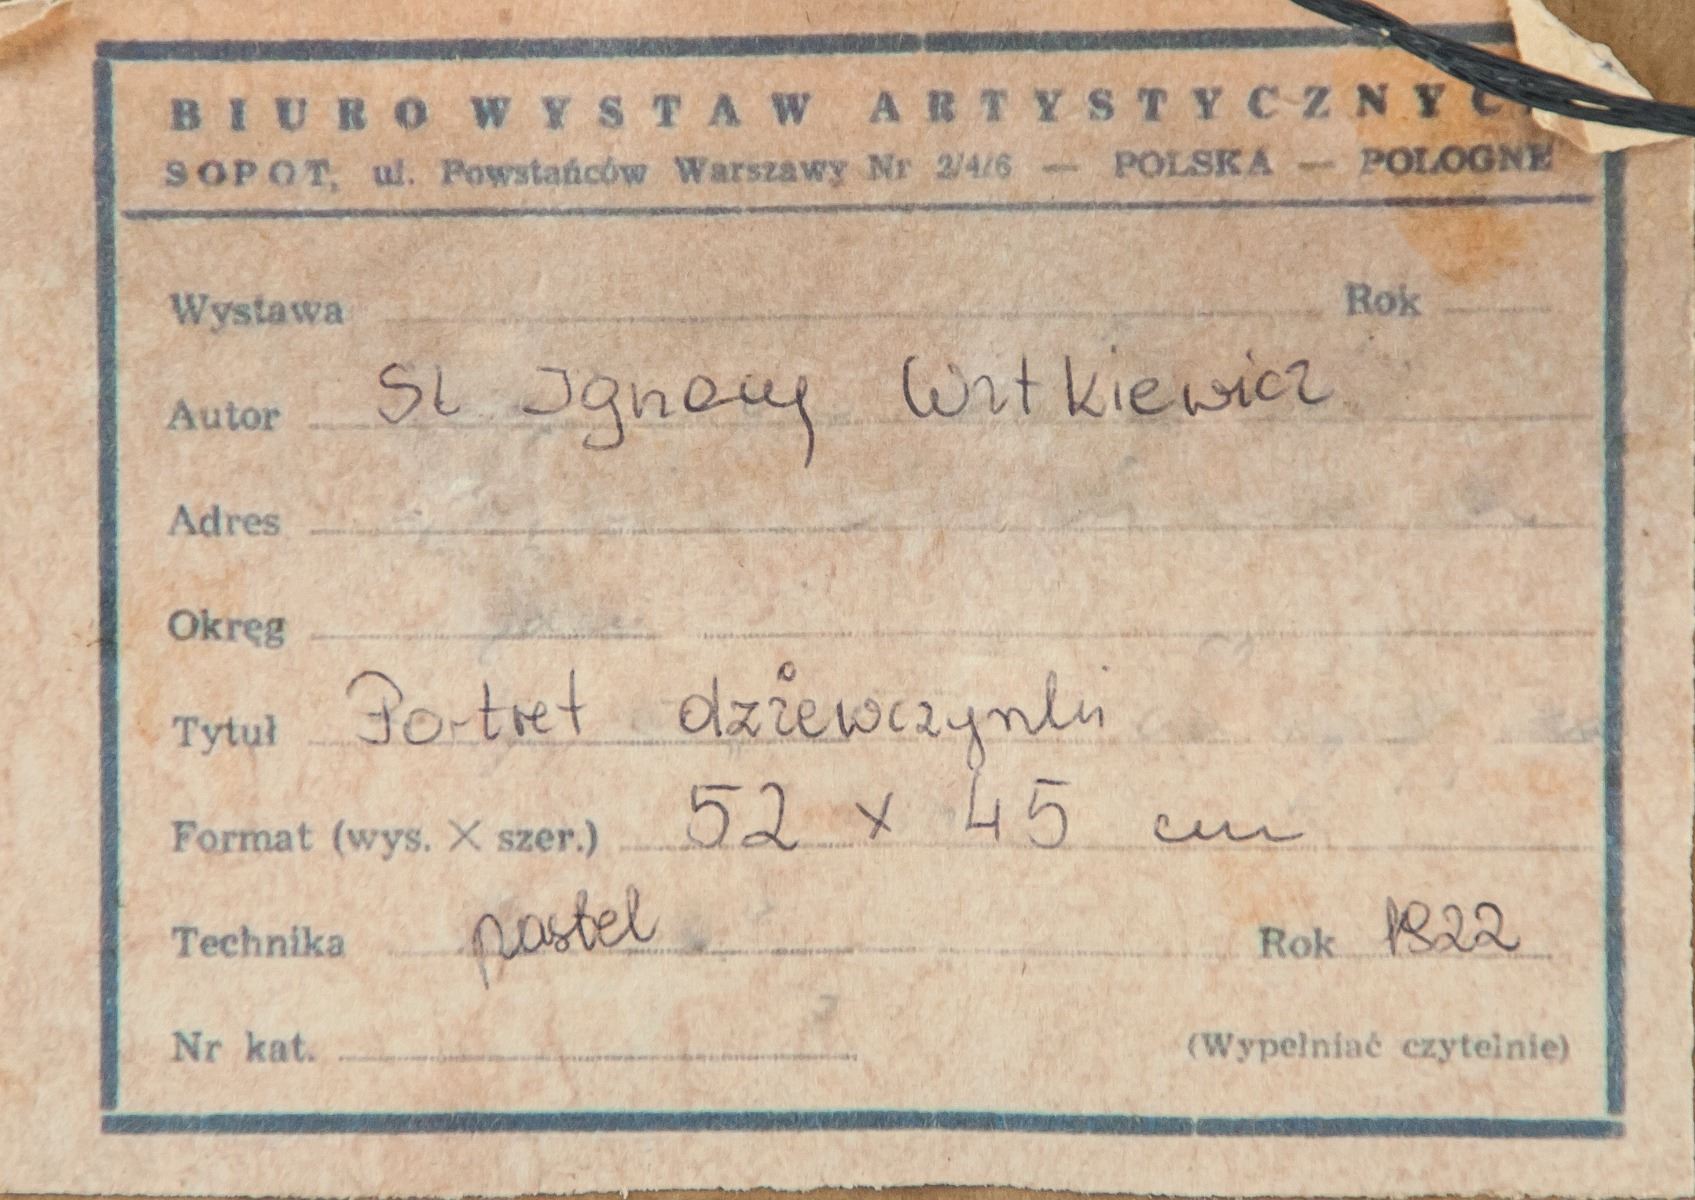 BIURO WYSTAW ARTYSTYCZNYC
SOPOT, ul. Powstańców Warszawy Nr 2/4/6 — POLSKA — POLOGNE
Wystawa Rok
Autor St Ignacy Witkiewicz
Adres
Okręg
Tytuł Portret dziewczynki
Format (wys. X szer.) 52 x 45 cm
Technika pastel Rok 1922
Nr kat. (Wypełniać czytelnie)